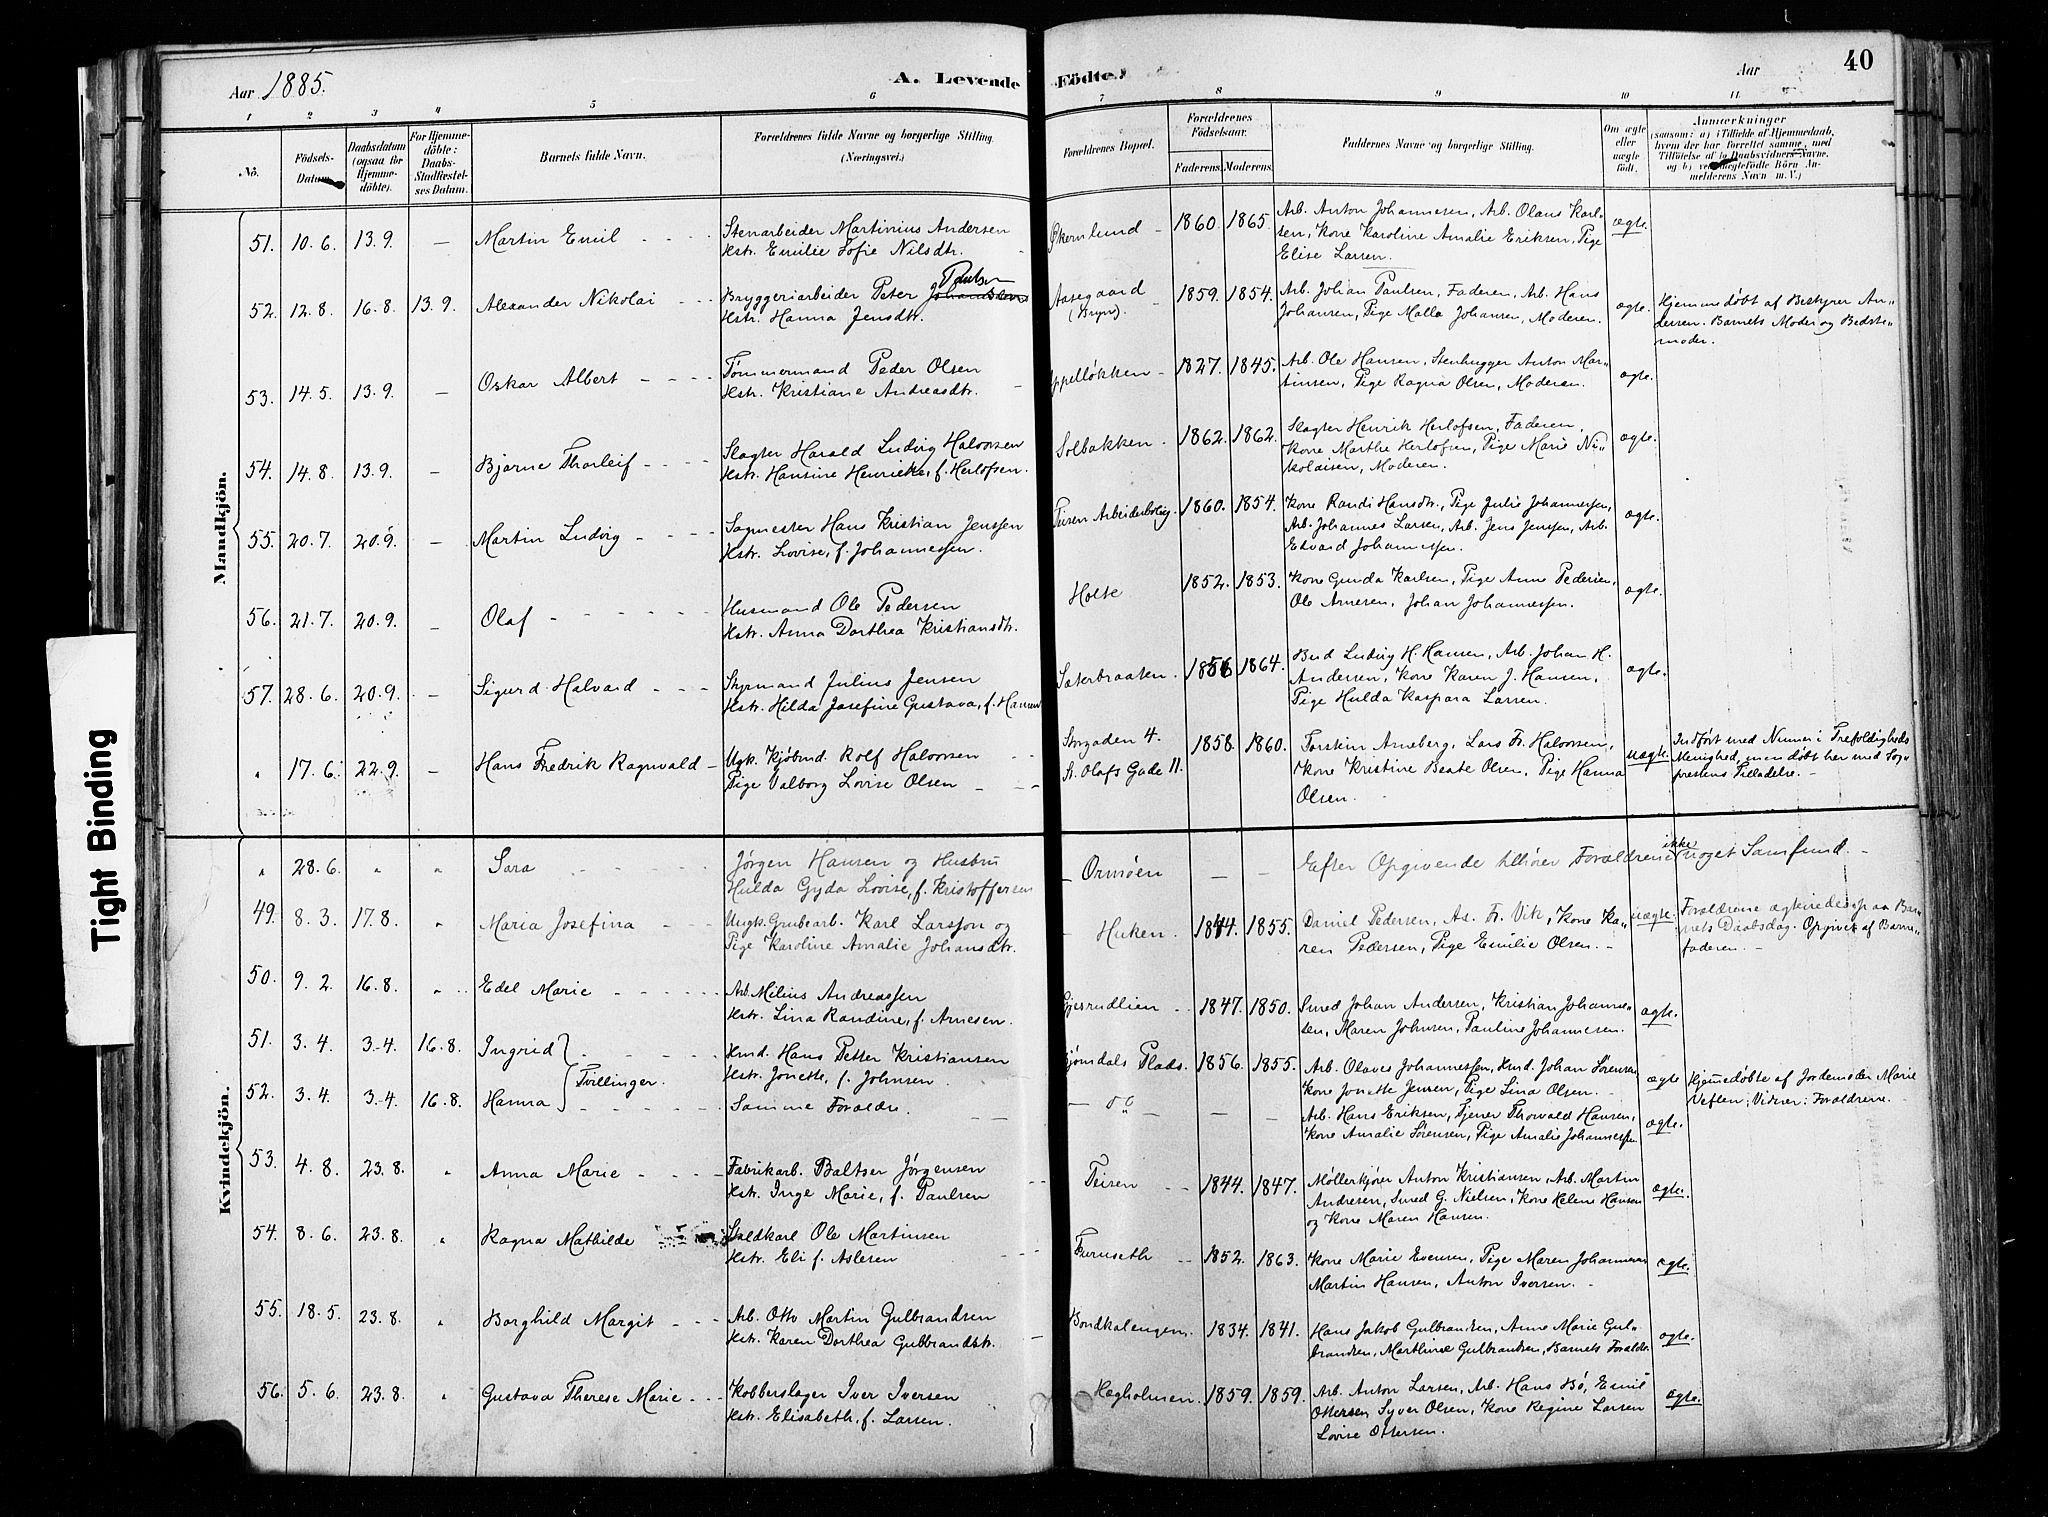 40
Aar 1885.
A. Levende Födte.
Aar
1 2 3 4 5 6 7 8 9 10 11
No.
Födsels-Datum.
Daabsdatum (ogsaa for Hjemme-döbte).
For Hjemme-döbte: Daabs-Stadfæstel-ses Datum.
Barnets fulde Navn.
Forældrenes fulde Navne og borgerlige Stilling. (Næringsvei.)
Forældrenes Bopæl.
Forældrenes Födselsaar.
Faderens. Moderens.
Faddernes Navne og borgerlige Stilling.
Om ægte eller uægte födt.
Anmærkninger
(saasom: a) i Tilfælde af Hjemmedaab,
hvem der har forrettet samme, med
Tilföielse af to Daabsvidners Navne.
og b) ved uægtefödte Börn An-
melderens Navn m. V.)
Mandkjön.
51. 10.6. 13.9. — Martin Emil
Stenarbeider Martinius Andersen
Hstr. Emilie Sofie Nilsdtr.
Økernlund 1860. 1865.
Arb. Anton Johannesen, Arb. Olaus Karl-
sen, Kone Karoline Amalie Eriksen, Pige
Elise Larsen.
ægte.
52. 12.8. 16.8. 13.9. Alexander Nikolai
Paulsen
Bryggeriarbeider Peter
Hstr. Hanna Jensdtr.
Aasegaard
(Bryn).
1859. 1854.
Arb. Johan Paulsen, Faderen, Arb. Hans
Johansen, Pige Malla Johansen, Moderen.
ægte.
Hjemmedøbt af Bestyrer An-
dersen. Barnets Moder og Bedste-
moder.
53. 14.5. 13.9. — Oskar Albert
Tømmermand Peder Olsen
Hstr. Kristiane Andreasdtr.
1827. 1845.
Arb. Ole Hansen, Stenhugger Anton Mar-
tinsen, Pige Ragna Olsen, Moderen.
ægte.
54. 14.8. 13.9. — Bjarne Thorleif
Slagter Harald Ludvig Halvorsen
Hstr. Hansine Henrikke, f. Herlofsen.
Solbakken. 1862. 1862.
Slagter Henrik Herlofsen, Faderen,
Kone Marthe Herlofsen, Pige Marie Ni-
kolaisen, Moderen.
ægte.
55. 20.7. 20.9. — Martin Ludvig
Sagmester Hans Kristian Jenssen
Hstr. Lovise, f. Johannessen.
Teisen Arbeiderbolig. 1860. 1854.
Kone Randi Hansdtr., Pige Julie Johannessen,
Arb. Johannes Larsen, Arb. Jens Jenssen, Arb.
Edvard Johannessen.
ægte.
56. 21.7. 20.9. — Olaf
Husmand Ole Pedersen
Hstr. Anna Dorthea Kristiansdtr.
Holte 1852. 1853.
Kone Gunda Karlsen, Pige Anne Pedersen,
Ole Arnesen, Johan Johannessen.
ægte.
57. 28.6. 20.9. — Sigurd Halvard
Styrmand Julius Jensen
Hstr. Hilda Josefine Gustava, f. Hansen
Sæterbraaten. 1864.
Bud Ludvig H. Hansen, Arb. Johan H.
Andersen, Kone Karen J. Hansen,
Pige Hulda Kaspara Larsen.
ægte.
" 17.6. 22.9. — Hans Fredrik Ragnvald
Ugk. Kjøbmd. Rolf Halvorsen
Pige Valborg Lovise Olsen
Storgaden 4.
St. Olafs Gade 11.
1858. 1860.
Torstin Arneberg, Lars Fr. Halvorsen,
Kone Kristine Beate Olsen, Pige Hanna
Olsen.
uægte.
Indført med Numer i Trefoldigheds
Menighed, men døbt her med Sog-
prestens Tilladelse.
Kvindekjön.
" 28.6. " " Sara
Jørgen Hansen og Hustru
Hulda Gyda Lovise, f. Kristoffersen
Ormøen — —
Efter Opgivende tilhører Forældrene ikke noget Samfund.
49. 8.3. 17.8. " Maria Josefina
Ungk. Grubearb. Karl Larsson og
Pige Karoline Amalie Johansdtr.
Huken. 1844. 1855.
Daniel Pedersen, As. Fr. Vik, Kone Ka-
ren Pedersen, Pige Emilie Olsen.
uægte.
Forældrene ægteviedes paa Bar-
nets Daabsdag. Opgivet af Barne-
faderen.
50. 9.2. 16.8. " Edel Marie
Arb. Milius Andreassen
Hstr. Lina Randine, f. Arnesen.
Gjersrudlien 1847. 1850.
Smed Johan Andersen, Kristian Johanne-
sen, Maren Johnsen, Pauline Johannesen.
ægte.
51. 3.4. 3.4. 16.8. Ingrid } Tvillinger.
Hmd. Hans Petter Kristiansen
Hstr. Jonette, f. Johnsen.
Bjørndals Plads. 1856. 1855.
Arb. Olaves Johannessen, Hmd. Johan Sörensen
Kone Jonette Jensen, Pige Lina Olsen.
ægte
Hjemmedøbte af Jordemoder Marie
Veflen; Vidner: Forældrene.
52. 3.4. 3.4. 16.8. Hanna
Samme Forældre.
— do — — —
Arb. Hans Eriksen, Tjener Thorvald Hansen,
Kone Amalie Sörensen, Pige Amalie Johannessen
ægte.
53. 4.8. 23.8. " Anna Marie
Fabrikarb. Baltser Jørgensen
Hstr. Inge Marie, f. Paulsen
Teisen 1844. 1847.
Møllerkjører Anton Kristiansen, Arb. Martin
Andresen, Smed G. Nielsen, Kone Helene Hansen
og Kone Maren Hansen.
ægte.
54. 8.6. 23.8. " Ragna Mathilde
Ole Martinsen
Hstr. Eli f. Aslesen
Furuseth 1852. 1863.
Kone Marie Evensen, Pige Maren Johannesen
Martin Hansen, Anton Iversen.
ægte.
55. 18.5. 23.8. " Borghild Margit
Arb. Otto Martin Gulbrandsen
Hstr. Karen Dorthea Gulbrandsdtr.
Bondkalengen. 1834. 1841.
Hans Jakob Gulbrandsen, Anne Marie Gul-
brandsen, Marthine Gulbrandsen, Barnets Forældre
ægte.
56. 5.6. 23.8. " Gustava Therese Marie
Kobberslager Iver Iversen
Hstr. Elisabeth, f. Larsen.
Hægholmen. 1859. 1859.
Arb. Anton Larsen, Arb. Hans Bö, Emil
Ottersen, Syver Olsen, Kone Regine Larsen
Lovise Ottersen.
ægte.
Tight Binding